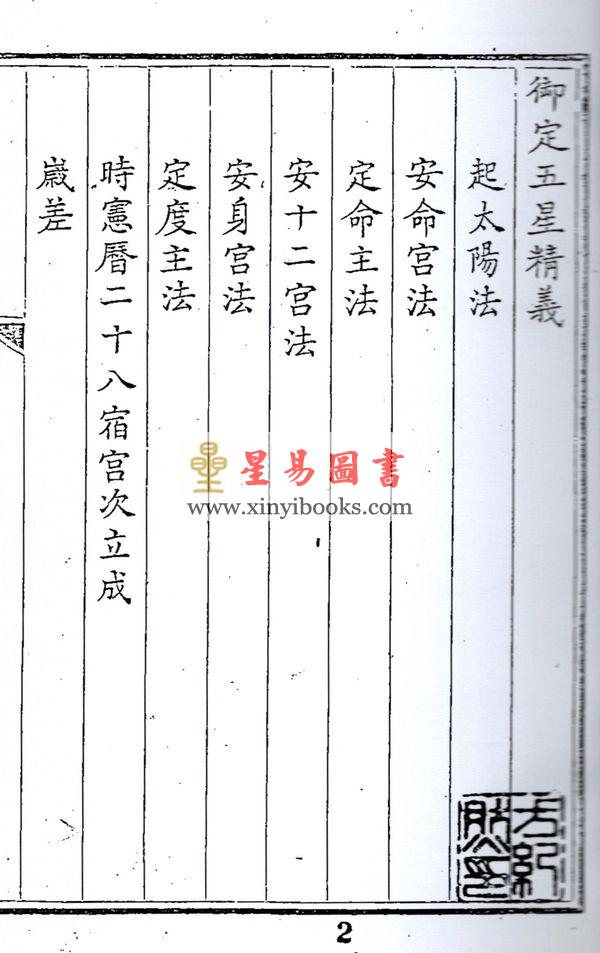 御定五星精義
起太陽法
安命宮法
定命主法
安十二宮法
安身宮法
定度主法
時憲曆二十八宿宮次立成
歲差
星易圖書
www.xinyibooks.com
2